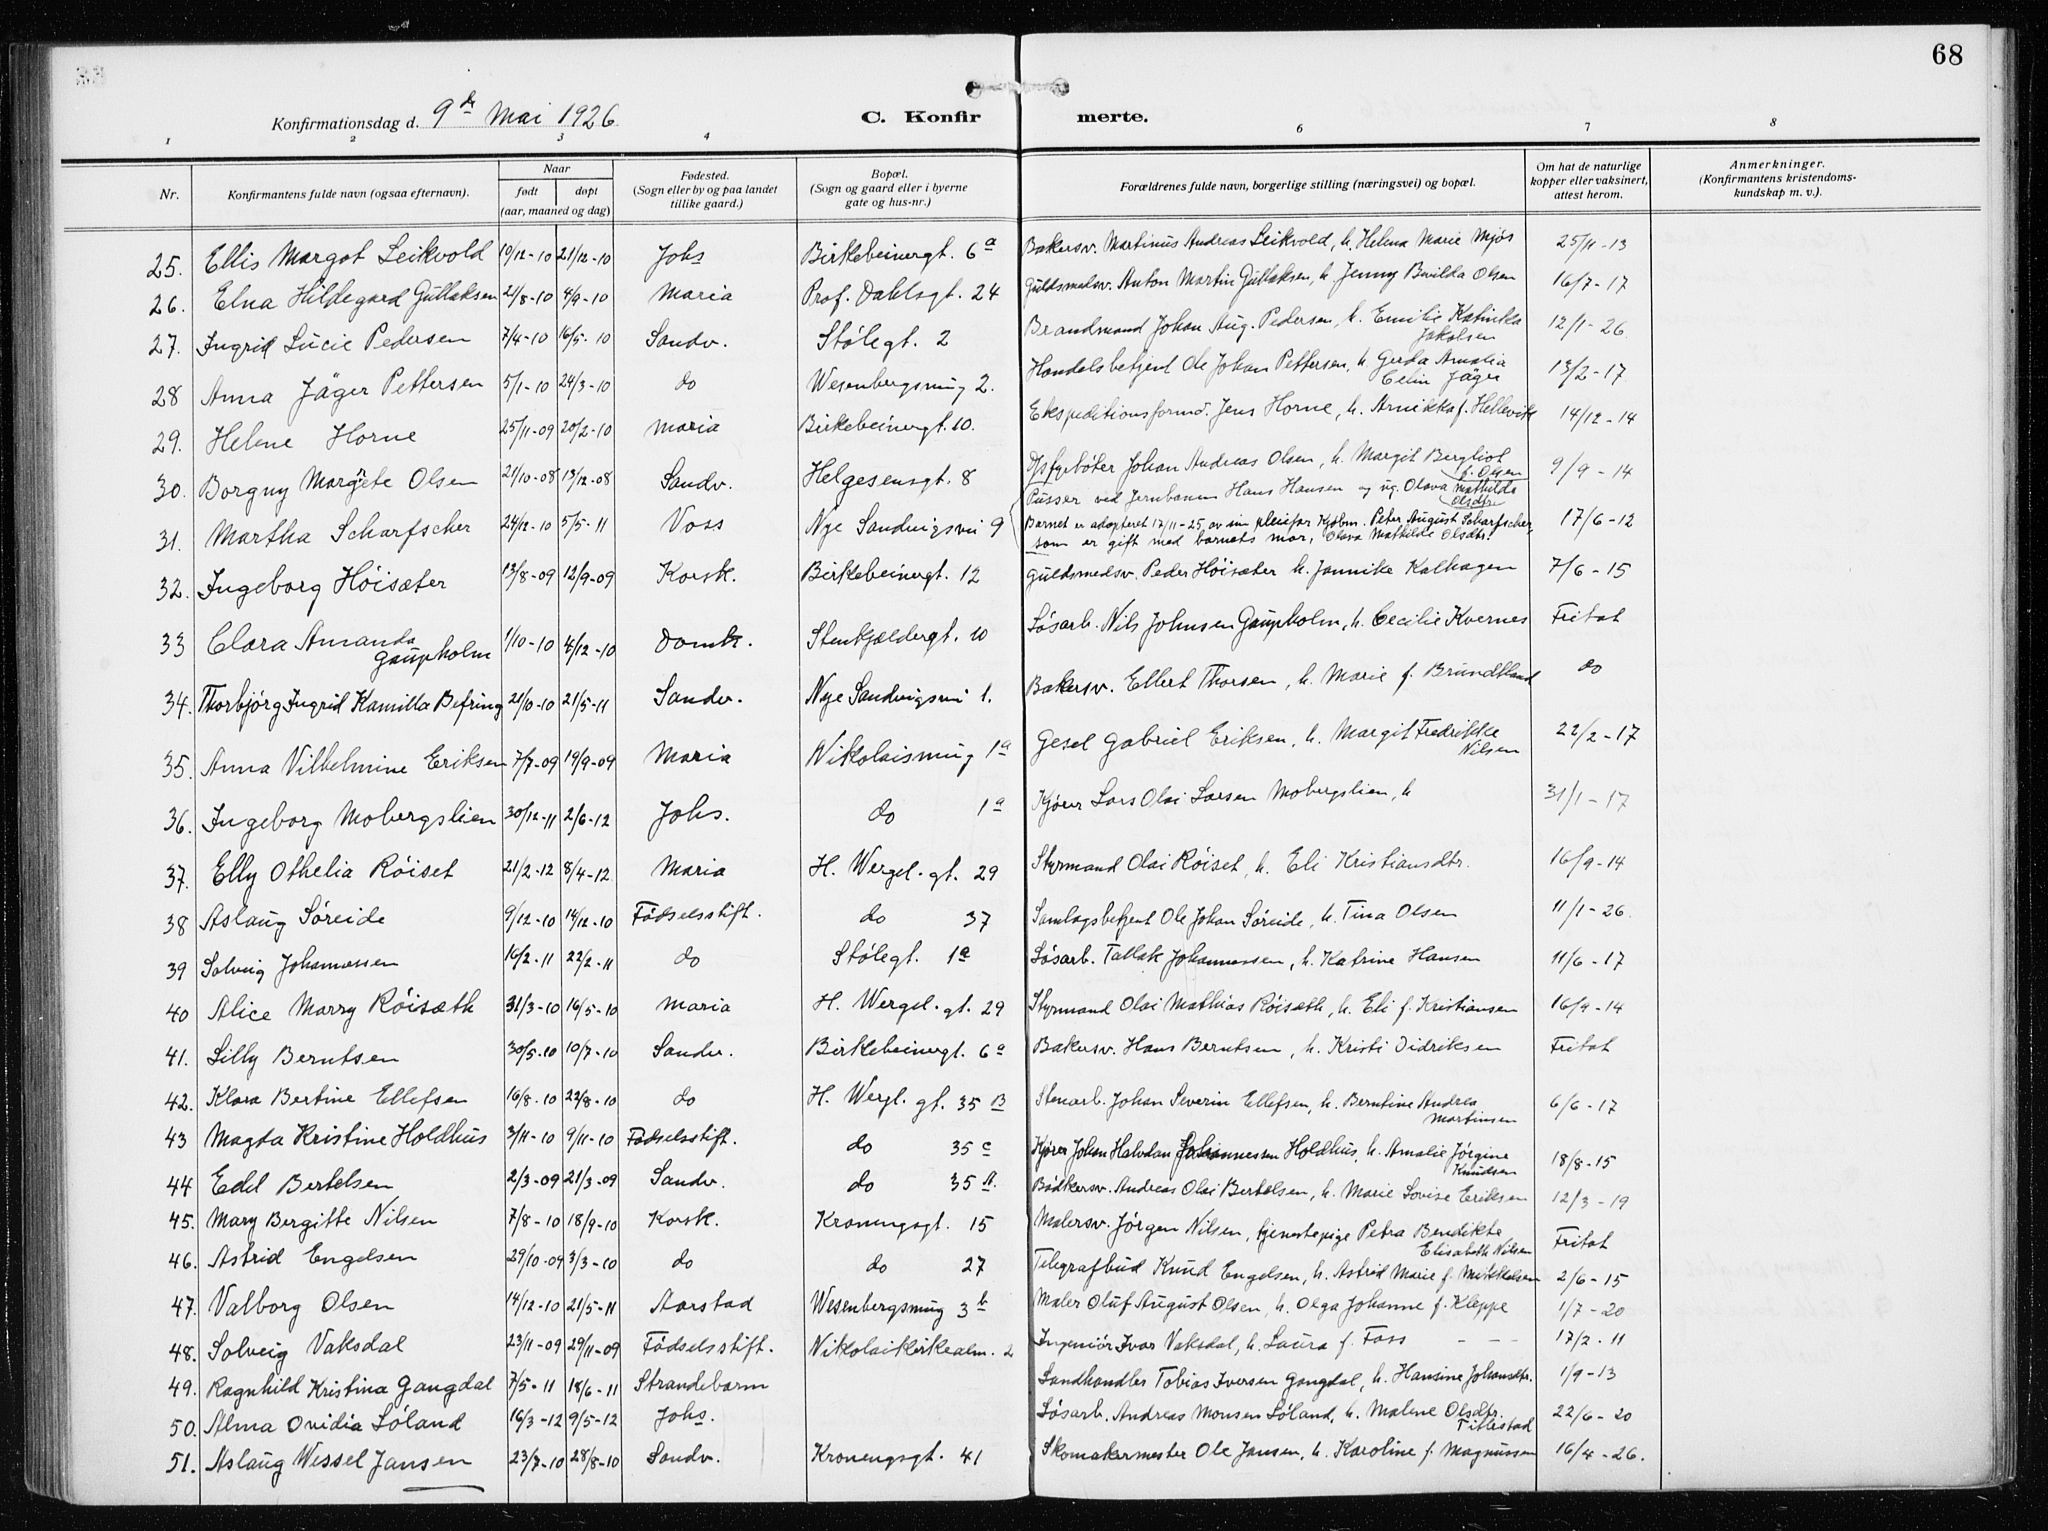 68
Konfirmationsdag d. 9de Mai 1926
C. Konfirmerte.
1 2 3 4 6 7 8
Nr. Konfirmantens fulde navn (ogsaa efternavn). Naar født døpt (aar, maaned og dag) Fødested. (Sogn eller by og paa landet tillike gaard.) Bopæl. (Sogn og gaard eller i byerne gate og hus-nr.) Forældrenes fulde navn, borgerlige stilling (næringsvei) og bopæl. Om hat de naturlige kopper eller vaksinert, attest herom. Anmerkninger. (Konfirmantens kristendomskundskap m. v.).
25. Ellis Margot Leikvold 19/12-10 21/12-10 Johs Birkebeinergt. 6a Bakersv. Martinus Andreas Leikvold, h. Helena Marie Mjøs 25/11-13
26. Elna Hildegard Gullaksen 21/8-10 4/9-10 Maria Prof. Dahlsgt. 24 Guldsmedsv. Anton Martin Gullaksen, h. Jenny Bwilda Olsen 16/7-17
27. Ingrid Lucie Pedersen 7/4-10 16/5-10 Sandv. Stølegt. 2 Brandmand Johan Aug. Pedersen, h. Emilie Katinka Jakobsen 12/1-26
28 Anna Jäger Pettersen 5/1-10 24/3-10 do Wesenbergsmug 2. Handelsbetjent Ole Johan Pettersen, h. Gerda Amalia Celin Jäger 13/2-17
29. Helene Horne 25/11-09 20/2-10 Maria Birkebeinergt. 10. Ekspeditionsformd. Jens Horne, h. Arnikka f. Hellevik 14/12-14
30. Borgny Margrete Olsen 21/10-08 13/12-08 Sandv. Helgesensgt. 8 Fyrbøter Johan Andreas Olsen, h. Margit Bergliot f. Olsen 9/9-14
31. Martha Scharfscher 24/12-10 5/5-11 Voss Nye Sandvigsvei 9 Pusser ved Jernbanen Hans Hansen og ug. Olava Mathilde Olsdtr. 17/6-12
Barnet er adopteret 17/11-25, av sin pleiefar Kjøbm. Peter August Scharfscher,
som er gift med barnets mor, Olava Mathilde Olsdtr.
32. Ingeborg Höisæter 13/8-09 12/9-09 Korsk. Birkebeinergt. 12 Guldsmedsv. Peder Höisæter h. Jannike Kalhagen 7/6-15
33 Clara Amanda Gaupholm 1/10-10 4/12-10 Domk. Stenkjeldergt. 10 Løsarb. Nils Johnsen Gaupholm, h. Cecilie Kvernes Fritat
34. Thorbjörg Ingrid Kamilla Befring 21/10-10 21/5-11 Sandv. Nye Sandvigsvei 1. Bakersv. Ellert Thorsen, h. Marie f. Brundtland do
35. Anna Vilhelmine Eriksen 7/7-09 19/9-09 Maria Nikolaismug 1a Gesel Gabriel Eriksen, h. Margit Fredrikke Nilsen 22/2-17
36. Ingeborg Mobergslien 30/12-11 2/6-12 Johs. do 1a Kjører Lars Olai Larsen Mobergslien, h 31/1-17
37. Elly Othelia Röiset 21/2-12 8/4-12 Maria H. Wergel. gt. 29 Styrmand Olai Röiset, h. Eli Kristiansdtr. 16/9-14
38 Aslaug Søreide 9/12-10 14/12-10 Födselsstift. do 37 Samlagsbetjent Ole Johan Søreide, h. Tina Olsen 11/1-26.
39 Solveig Johannessen 16/2-11 22/2-11 do Stølegt. 1a Løsarb. Tallak Johannessen, h. Katrine Hansen 11/6-17
40 Alice Marry Röisæth 31/3-10 16/5-10 Maria H. Wergel. gt. 29 Styrmand Olai Mathias Röisæth, h. Eli f. Kristiansen 16/9-14
41. Lilly Berntsen 30/5-10 10/7-10 Sandv. Birkebeinergt. 6a Bakersv. Hans Berntsen, h. Kristi Didriksen Fritat
42. Klara Bertine Ellefsen 16/8-10 22/8-10 do H. Wergl. gt. 35 B Stenarb. Johan Severin Ellefsen, h. Berntine Andrea Martinsen 6/6-17
43 Magda Kristine Holdhus 3/11-10 9/11-10 Fødselsstift. do 35 c Kjører Johan Halvdan Johannessen Holdhus, h. Amalie Jörgine Knudsen 18/8-15
44 Edel Bertelsen 2/3-09 21/3-09 Sandv. do 35 A. Bødkersv. Andreas Olai Bertelsen, h. Marie Lovise Eriksen 12/3-19
45. Mary Bergitte Nilsen 7/8-10 18/9-10 Korsk. Kroningsgt. 15 Malersv. Jörgen Nilsen, tjenestepige Petra Bendikte Elisabeth Nilsen Fritat
46. Astrid Engelsen 29/10-09 3/3-10 do do 27 Telegrafbud Knud Engelsen, h. Astrid Marie f. Mikkelsen 2/6-15
47. Valborg Olsen 14/12-10 21/5-11 Aarstad Wesenbergsmug 3b Maler Oluf August Olsen, h. Olga Johanne f. Kleppe 1/7-20
48. Solveig Vaksdal 23/11-09 29/11-09 Födselsstift. Nikolaikirkealm. 2 Ingeniör Ivar Vaksdal, h. Laura f. Foss - - - 17/2-11
49. Ragnhild Kristina Gangdal 7/5-11 18/6-11 Strandebarm Sandhandler Tobias Iversen Gangdal, h. Hansine Johansdtr. 1/9-13
50. Alma Ovidia Løland 16/3-12 9/5-12 Johs. Løsarb. Andreas Monsen Løland, h. Malene Olsdtr. Fitlestad 22/6-20
51. Aslaug Wessel Jansen 23/7-10 28/8-10 Sandv. Kronengsgt. 41 Skomakermester Ole Jansen, h. Karoline f. Magnussen 16/4-26.